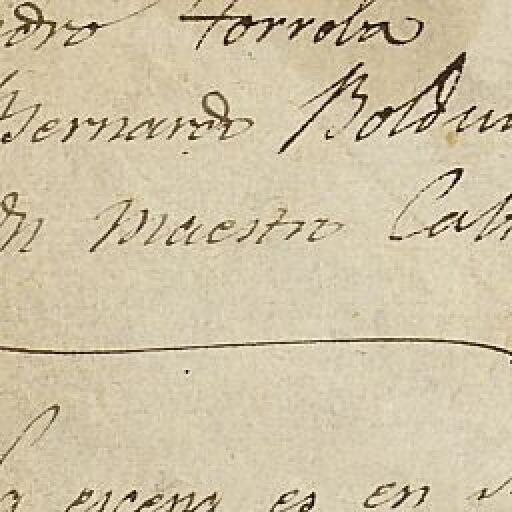 edro Torrola
Bernardo Boldun
Maestro
La escena es en